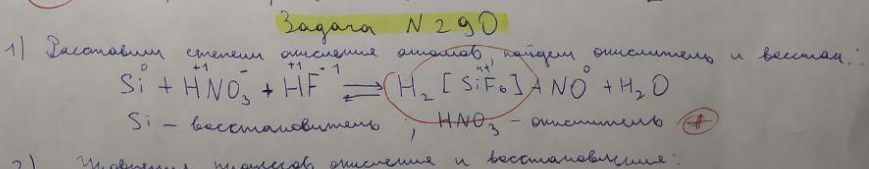 Задача N 290
1) Расставим степени окисления атомов, найдем окислитель и восстан.:
Si⁰ + H⁺¹NO₃⁻ + H⁺¹F⁻¹ ⇄ H₂[Si⁴⁺F₆] + NO⁰ + H₂O
Si – восстановитель, HNO₃ – окислитель
2) Уравнения процессов окисления и восстановления: